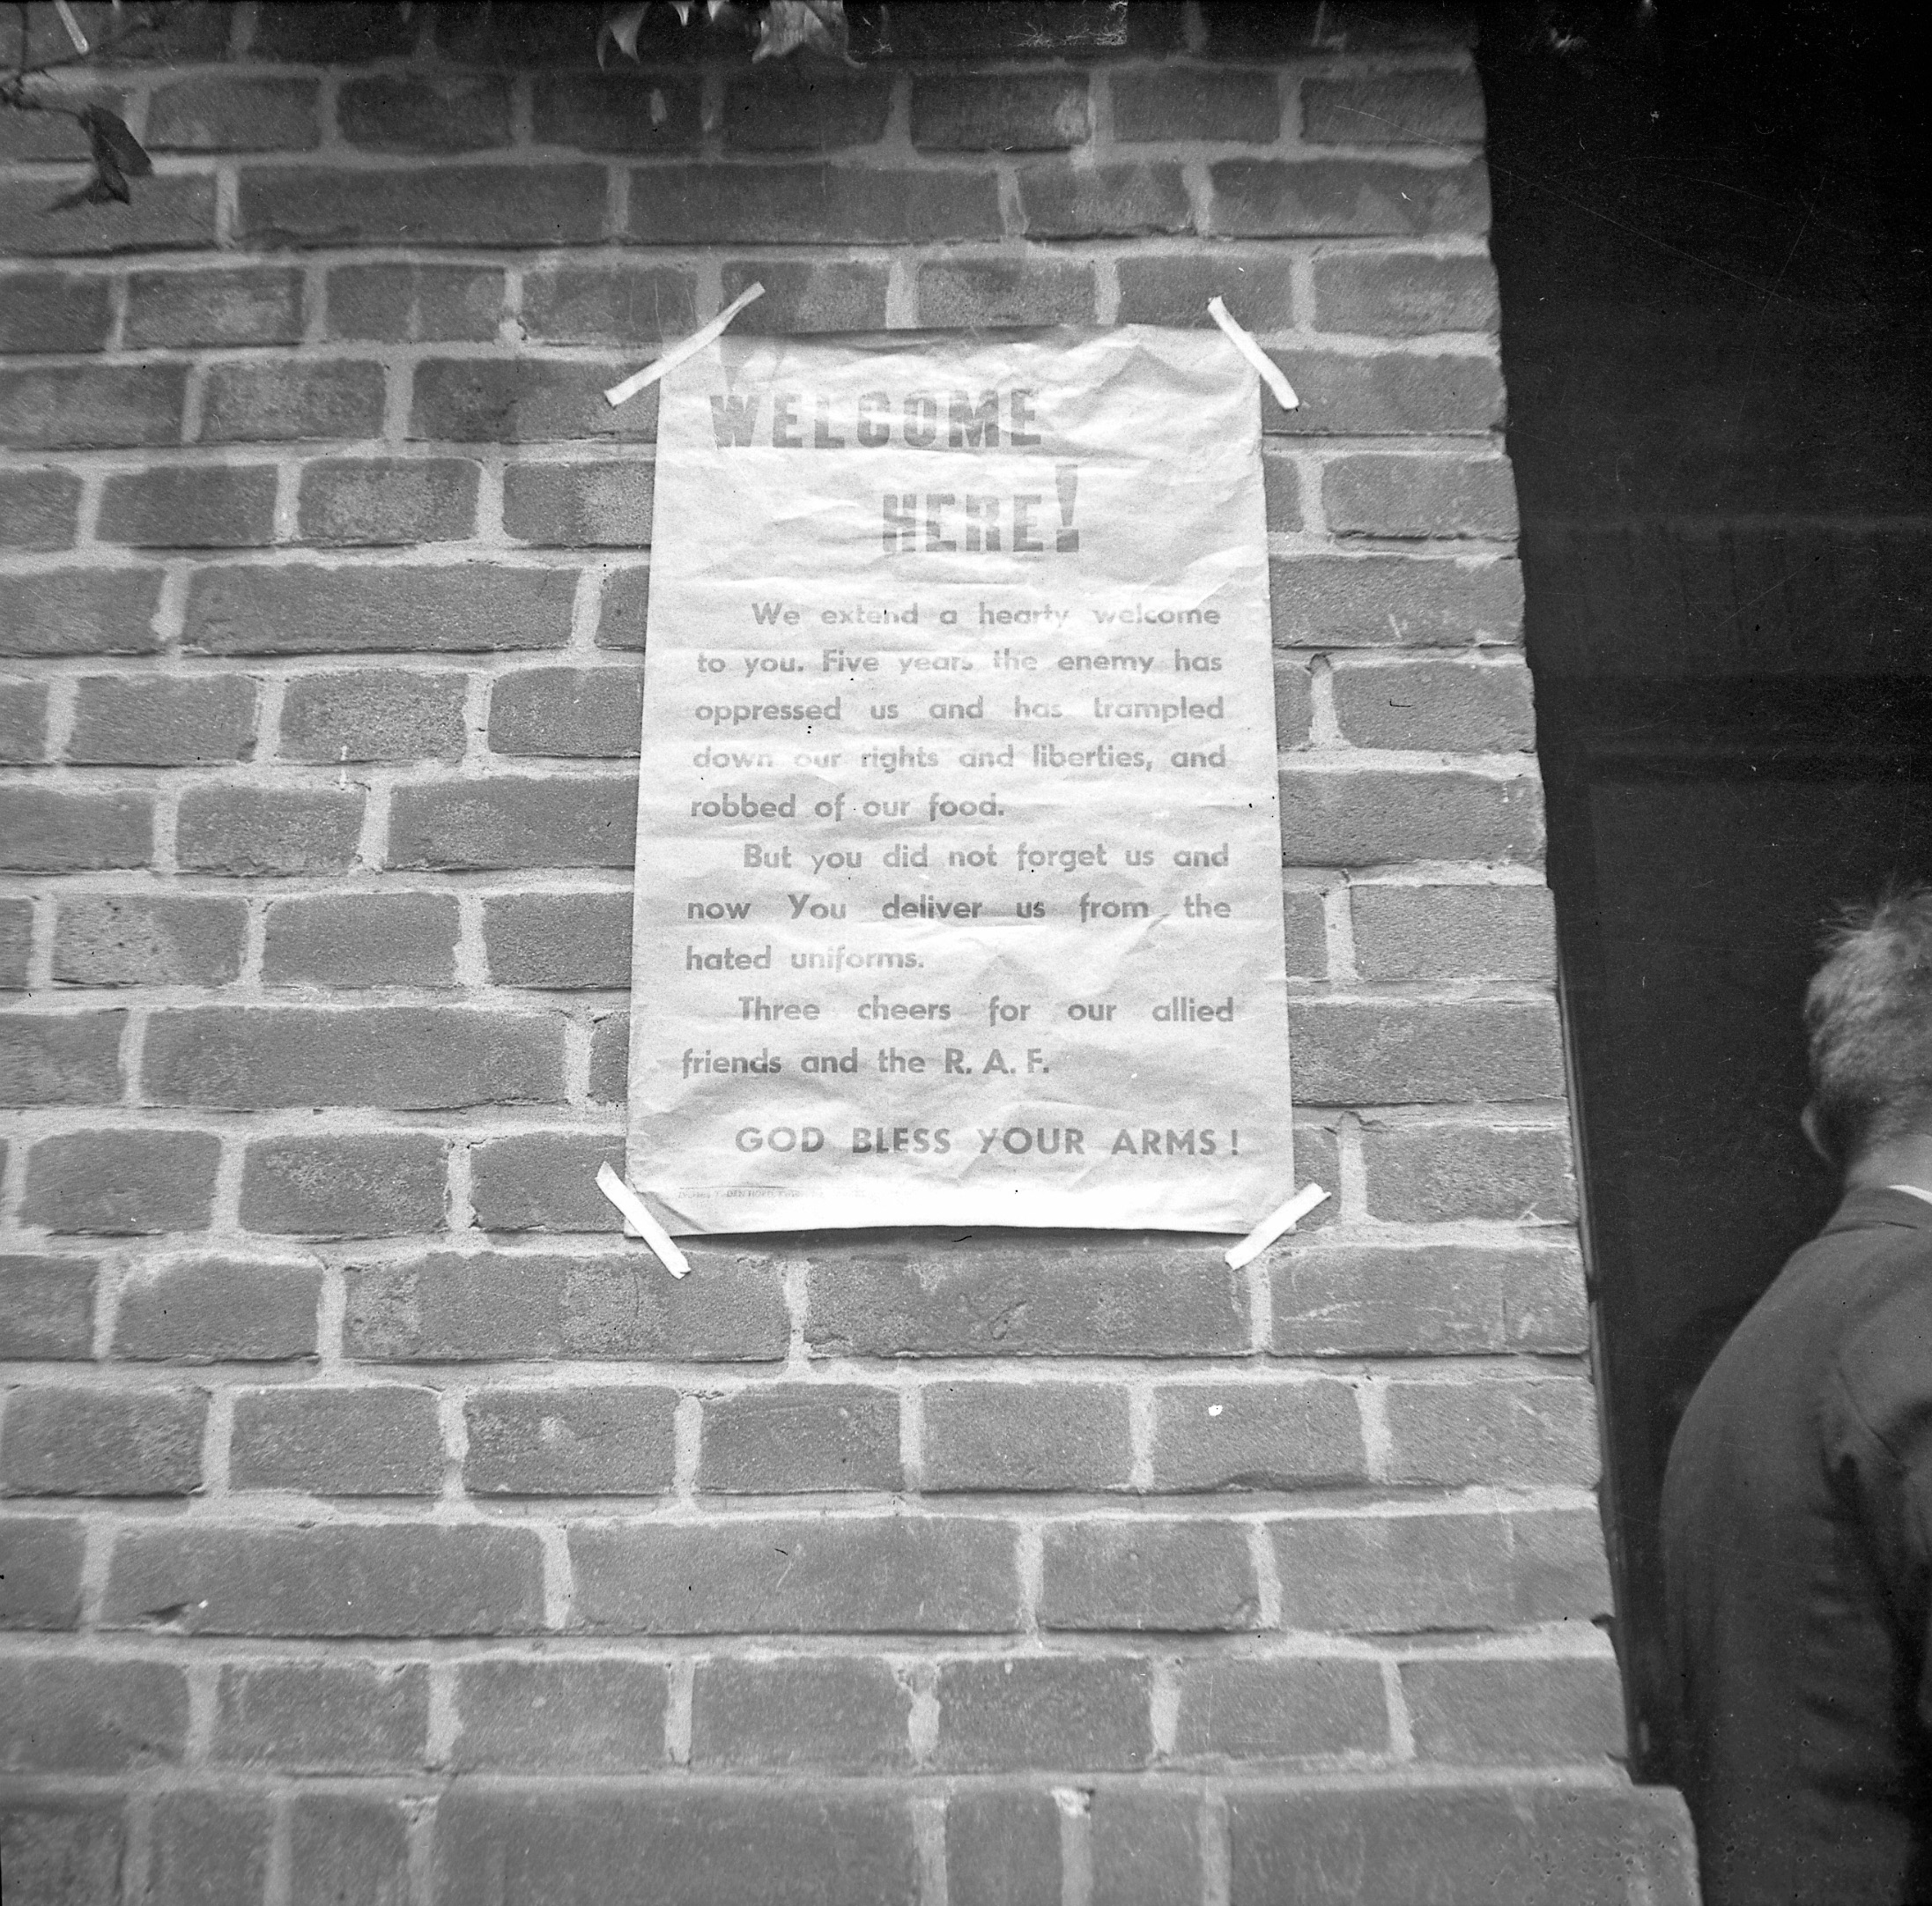 WELCOME
HERE!
We extend a hearty welcome
to you. Five years the enemy has
oppressed us and has trampled
down our rights and liberties, and
robbed of our food.
But you did not forget us and
now You deliver us from the
hated uniforms.
Three cheers for our allied
friends and the R. A. F.
GOD BLESS YOUR ARMS!